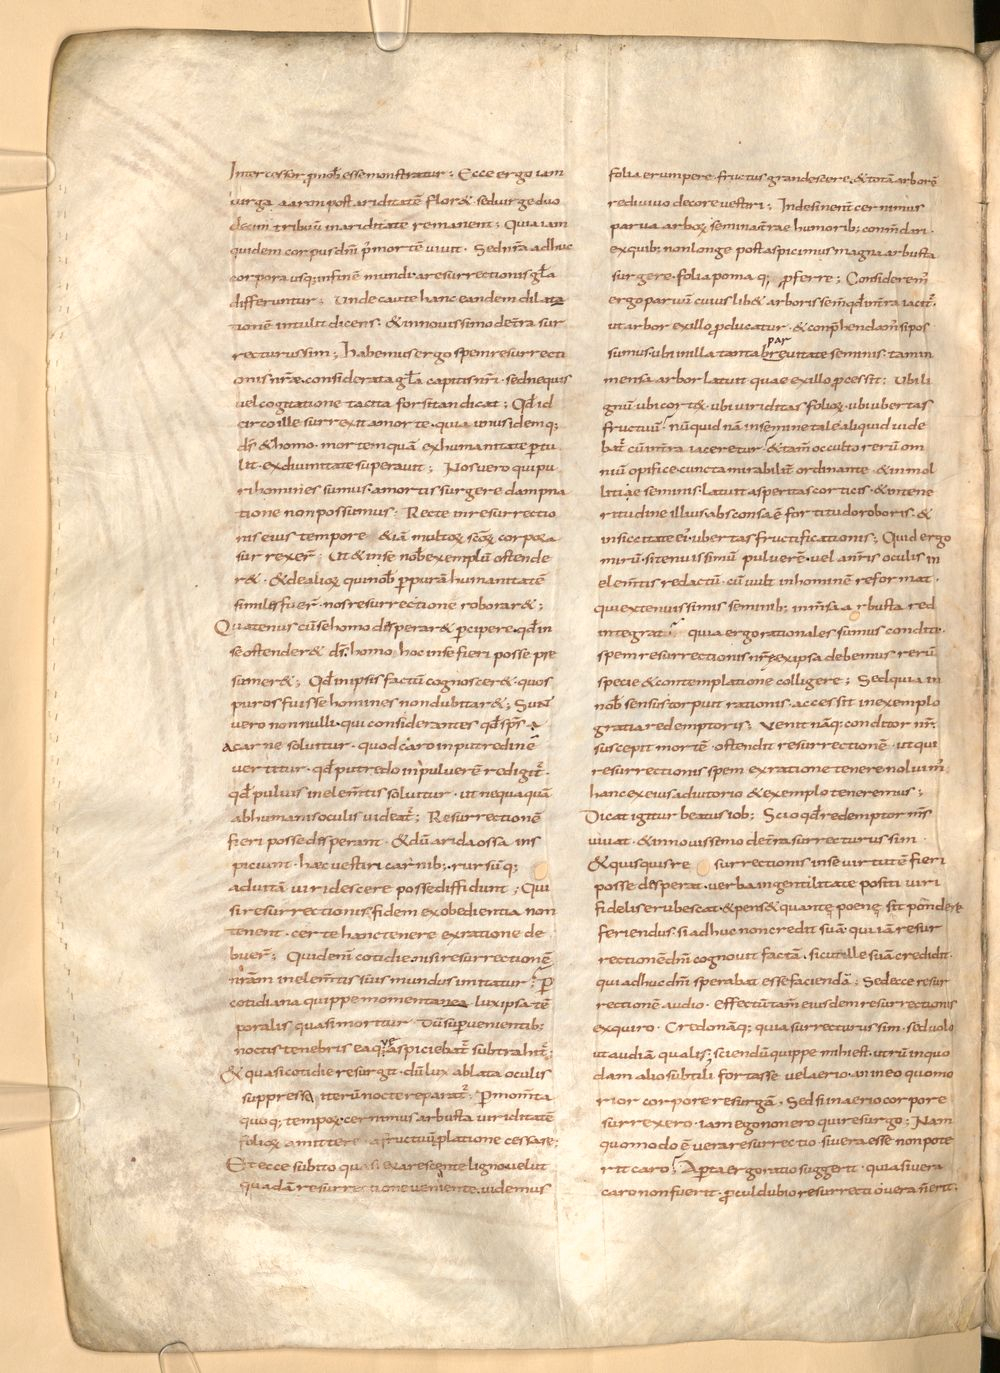 Intercessor p nob̄ esse monstratur; Ecce ergo iam
uirga aaron post ariditatē flor& sed uirgę duo
decim tribuū in ariditate remanent; Quia iam
quidem corpus dn̄i p̄ mortē uiuit. Sed nr̄a adhuc
corpora usq; in finē mundi a resurrectionis gl̄a
differuntur; Unde caute hanc eandem dilata
tionē intulit dicens. & in nouissimo de t̄ra sur
recturus sim; Habemus ergo spem resurrecti
onis nr̄ae. considerata gl̄a capitis nr̄i. sed nequis
uel cogitatione tacita forsitan dicat; Qd̄ id
circo ille surrexit a morte. quia unus idemq;
ds̄ & homo. mortem quā ex humanitate ptu
lit. ex diuinitate superauit; Nos uero qui pu
ri homines sumus. a mortis surgere dampna
tione non possumus; Recte in resurrectio
nis eius tempore & iā multoꝝ sc̄oꝝ corpora
surrexer̄; Ut & in se nob̄ exemplū ostende
r&. & de alioꝝ qui nob̄ p purā humanitatē
similes fuer̄. nos resurrectione roborar&;
Quatenus cū se homo desperar& pcipere. qd̄ in
se ostender& ds̄ homo hoc in se fieri posse pre
sumer&; Qd̄ in ipsis factū cognoscer&. quos
puros fuisse homines non dubitar&; Sunt
uero non nulli. qui considerantes qd̄ sp̄s
a carne soluitur. quod caro in putredinē
uertitur. qd̄ putredo in puluerē redigit̄.
qd̄ puluis in elem̄tis soluitur. ut nequaquā
ab humanis oculis uideat̄; Resurrectionē
fieri posse desperant. & dū arida ossa ins
piciunt. haec uestiri carnib;. rursūq;
ad uitā uiridescere posse diffidunt; Qui
si resurrectionis fidem ex obedientia non
tenent. certe hanc tenere ex ratione de
buer̄; Quid em̄ cotidie nisi resurrectionē
nr̄am in elem̄tis suis mundus imitatur; P
cotidiana quippe momentanea lux ipsa tē
poralis quasi moritur Dū supuenientib;
noctis tenebris ea quę aspiciebat̄ subtrahit̄;
& quasi cotidie resurgit. dū lux ablata oculis
suppressa iterū nocte reparat̄. P mom̄ta
quoq; tempoꝝ cernimus arbusta uiriditatē
folioꝝ amittere. a fructuū platione cessare;
Et ecce subito quasi ex arescente ligno uelut
quadā resurrectione ueniente. uidemus
folia erumpere. fructus grandescere. & totā arborē
rediuiuo decore uestiri; Indesinent̄ cernimus
parua arboꝝ semina t̄rae humorib; com̄dari.
ex quib; non longe post aspicimus magna arbusta
surgere. folia poma q; pferre; Considerem̄
ergo paruū cuius lib& arboris sem̄ qd̄ in t̄ra iacit̄.
ut arbor ex illo pducatur. & conp̄hendam̄ si pos
sumus ubi in illa tanta breuitate seminis. tam in
mensa arbor latuit quae ex illo pcessit; Ubi li
gnū. ubi cort&. ubi uiriditas folioꝝ. ubi ubertas
fructuū. nū quid nā in semine tale aliquid uide
bat̄ cū in t̄ra iaceretur. & tam̄ occulto rerū om
niū opifice cuncta mirabilit̄ ordinante. & in mol
litiae seminis. latuit asperitas corticis. & in tene
ritudine illius absconsa ē fortitudo roboris. &
in siccitate ei'. ubertas fructificationis; Quid ergo
mirū. si tenuissimū puluerē. uel a nr̄is oculis in
elem̄tis redactū. cū uult in hominē reformat.
qui ex tenuissimis seminib; inm̄sa arbusta red
integrat quia ergo rationales sumus conditi.
spem resurrectionis nr̄ę. ex ipsa debemus rerū
specie & contemplatione colligere; Sed quia in
nob̄ sensus torpuit rationis. accessit in exemplo
gratia redemptoris; Uenit nāq; conditor nr̄.
suscepit mortē. ostendit resurrectionē. ut qui
resurrectionis spem ex ratione tenere noluim̄
hanc ex eius adiutorio & exemplo teneremus;
Dicat igitur beatus iob; Scio qd̄ redemptor ms̄
uiuat. & in nouissimo de t̄ra surrecturus sim
& quisquis re surrectionis in se uirtutē fieri
posse desperat. uerba in gentilitate positi uiri
fidelis erubescat. & pens& quantę poenę sit pōndere
feriendus. si adhuc non credit suā. qui iā resur
rectionē dn̄i cognouit factā. si cut ille suā credidit.
qui adhuc dn̄i sperabat esse faciendā; Sed ecce resur
rectionē audio. Effectū tam̄ eiusdem resurrectionis
exquiro. Credo nāq; quia surrecturus sim. sed uolo
ut audiā qualis; sciendū quippe mihi est. utrū in quo
dam alio subtili fortasse uel aerio. an in eo quo mo
rior corpore resurgā. Sed si in aerio corpore
surrexero. iam ego non ero qui resurgo; Nam
quomodo ē uera resurrectio. si uera esse non pote
rit caro; Apta ergo ratio suggerit. quia si uera
caro non fuerit. pcul dubio resurrectio uera n̄ erit.